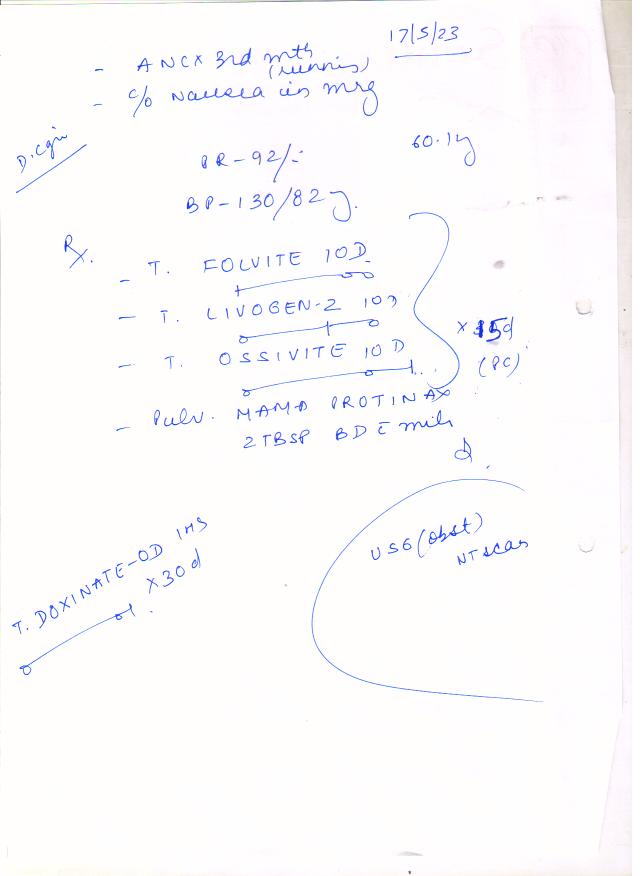 17/5/23
- ANC x 3rd mth
(running)
- c/o Nausea in mrg
60.1
PR - 92/-
BP - 130/82
Rx.
- T. FOLVITE 1OD
- T. LIVOGEN-Z 1OD
- T. OSSIVITE 1OD
x 15d
(PC)
- Pulv. MAMA PROTINAX
2 TBSP BD c milk
T. DOXINATE-OD 1HS
x 30d
USG (obst)
NT scan